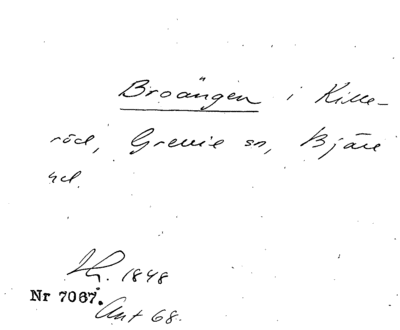 Broängen i Kille-
röd, Grevie sn, Bjäre
hd.
Th. 1848
Nr 7067.
Ant 68.